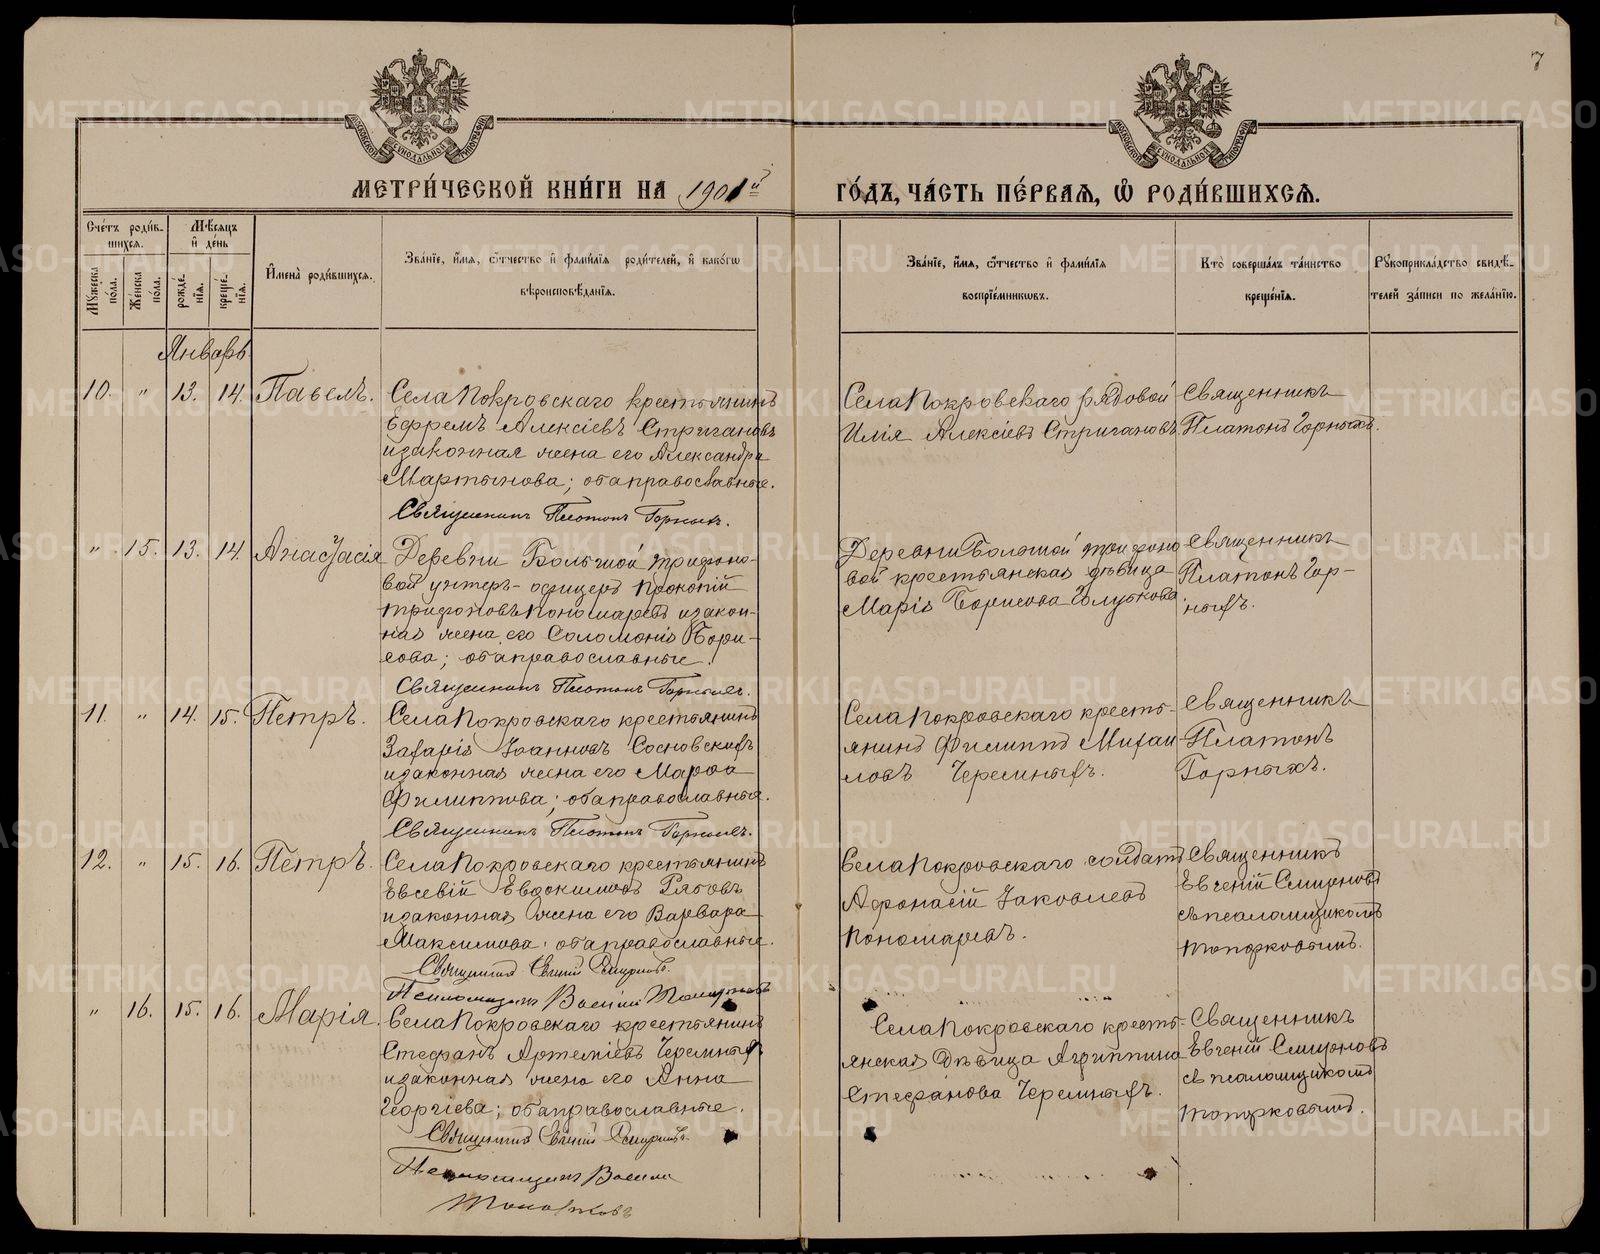 7
МЕТРИ́ЧЕСКОЙ КНИ́ГИ НА 1901й ГО́ДЪ, ЧА́СТЬ ПЕ́РВАѦ, Ѽ РОДИ́ВШИХСѦ.
Сче́тъ роди́в-
шихся.
Мѣ́сяцъ
и҆ де́нь
Мꙋ́жеска
по́ла.
Же́нска
по́ла.
рожде́-
нїя.
креще́-
нїя.
И҆мена̀ роди́вшихся.
Зва́нїе, и҆́мя, ѻ҆́тчество и҆ фами́лїя роди́телей, и҆ како́гѡ
вѣроисповѣ́данїя.
Зва́нїе, и҆́мя, ѻ҆́тчество и҆ фами́лїя
воспрїе́мникѡвъ.
Кто̀ соверша́лъ та́инство
креще́нїя.
Рꙋкоприкла́дство свидѣ́-
телей за́писи по жела́нїю.
Январь
10. " 13. 14. Павелъ.
Села Покровскаго крестьянинъ
Ефремъ Алексіевъ Стригановъ
и законная жена его Александра
Мартынова; оба православные.
Священникъ Платонъ Горныхъ.
Села Покровскаго рядовой
Илія Алексіевъ Стригановъ.
Священникъ
Платонъ Горныхъ.
" 15. 13. 14. Анастасія
Деревни Большой Трифоно-
вой унтеръ-офицеръ Прокопій
Трифоновъ Пономаревъ и закон-
ная жена его Соломонія Бори-
сова; оба православные.
Священникъ Платонъ Горныхъ.
Деревни Большой Трифоно
вой крестьянская дѣвица
Марія Борисова Голубкова
Священникъ
Платонъ Гор-
ныхъ.
11. " 14. 15. Петръ.
Села Покровскаго крестьянинъ
Захарія Іоанновъ Сосновскихъ
и законная жена его Марѳа
Филиппова; оба православные.
Священникъ Платонъ Горныхъ.
Села Покровскаго кресть-
янинъ Филиппъ Михаи-
ловъ Черемныхъ.
Священникъ
Платонъ
Горныхъ.
12. " 15. 16. Петръ.
Села Покровскаго крестьянинъ
Евсевій Евдокимовъ Рябовъ
и законная жена его Варвара
Максимова; оба православные.
Священникъ Евгеній Смирновъ.
Псаломщикъ Василій Топорковъ
Села Покровскаго солдатъ
Афонасій Іаковлевъ
Пономаревъ.
Священникъ
Евгеній Смирновъ
съ псаломщикомъ
Топорковымъ.
" 16. 15. 16. Марія.
Села Покровскаго крестьянинъ
Стефанъ Артеміевъ Черемныхъ
и законная жена его Анна
Георгіева; оба православные.
Священникъ Евгеній Смирновъ.
Псаломщикъ Василій
Топорковъ
Села Покровскаго кресть-
янская дѣвица Агриппина
Стефанова Черемныхъ.
Священникъ
Евгеній Смирновъ
съ псаломщикомъ
Топорковымъ.
METRIKI.GASO-URAL.RU